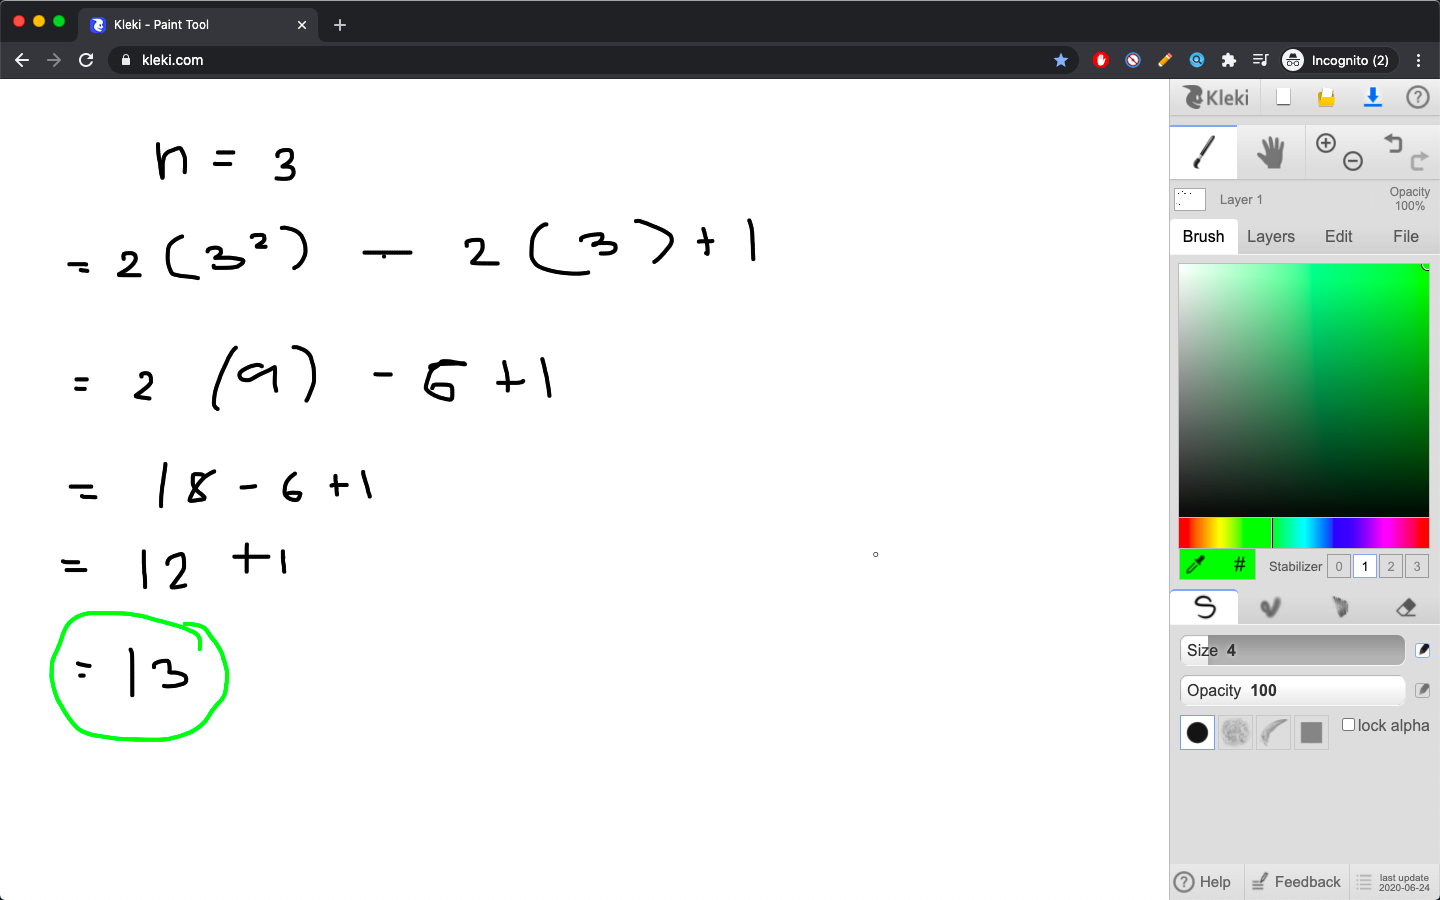 Kleki - Paint Tool
kleki.com
Incognito (2)
n = 3
= 2 (3²) - 2 (3) + 1
= 2 (9) - 6 + 1
= 18 - 6 + 1
= 12 + 1
= 13
Kleki
Layer 1
Opacity
100%
Brush Layers Edit File
# Stabilizer 0 1 2 3
Size 4
Opacity 100
lock alpha
Help Feedback last update
2020-06-24